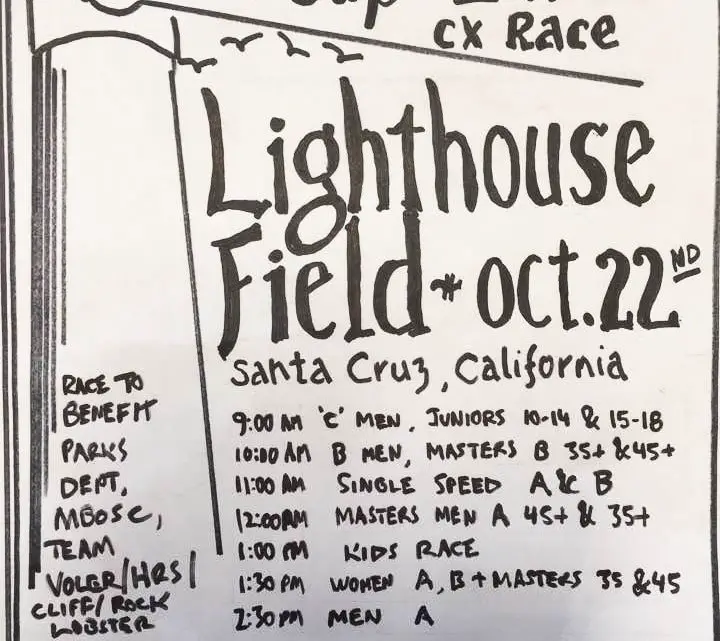 CX Race
Lighthouse
Field * oct. 22ND
Santa Cruz, California
RACE TO
BENEFIT
PARKS
DEPT,
MBOSC,
TEAM
VOLER/HRS/
CLIFF/ROCK
LOBSTER
9:00 AM 'C' MEN, JUNIORS 10-14 & 15-18
10:00 AM B MEN, MASTERS B 35+ & 45+
11:00 AM SINGLE SPEED A & B
12:00 PM MASTERS MEN A 45+ & 35+
1:00 PM KIDS RACE
1:30 PM WOMEN A, B + MASTERS 35 & 45
2:30 PM MEN A